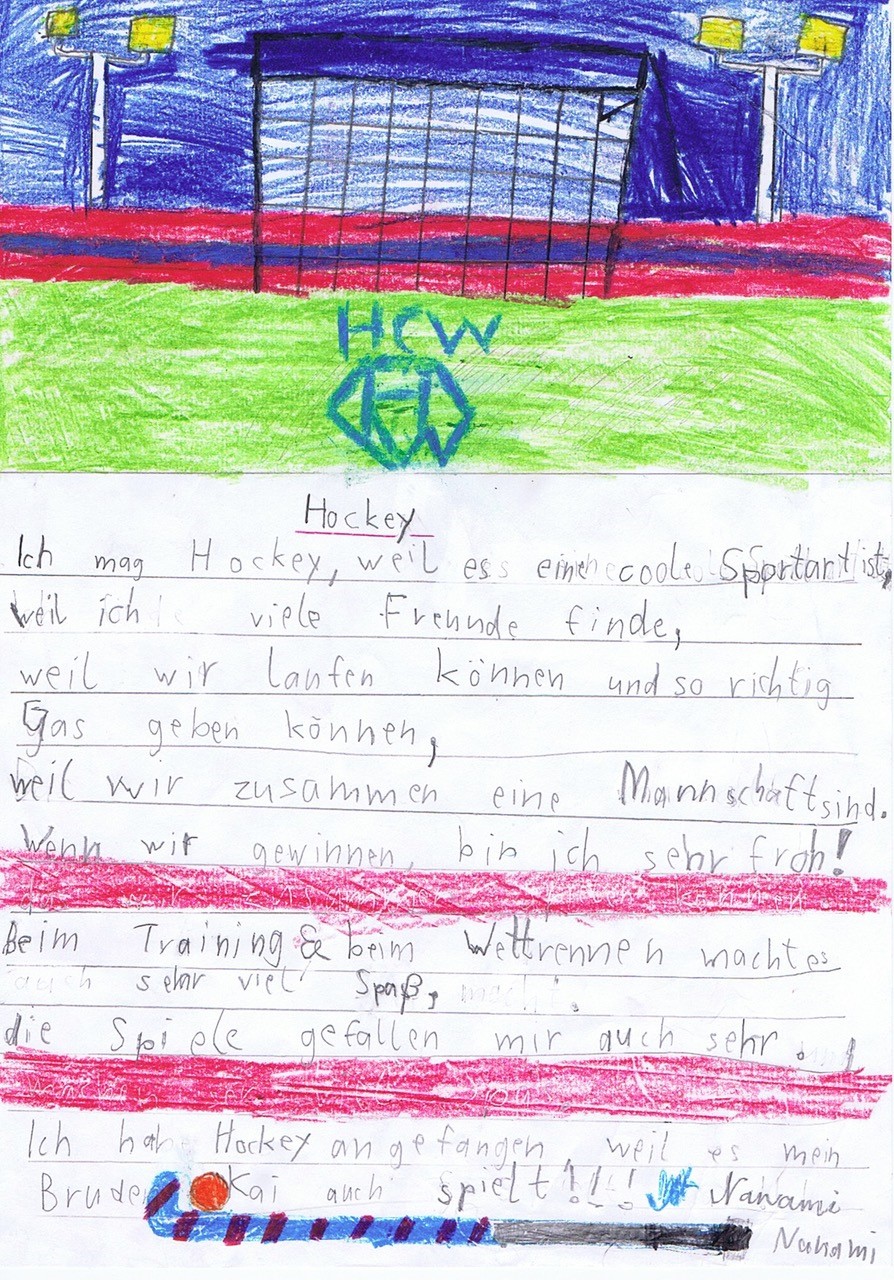 HCW
Hockey
Ich mag Hockey, weil es eine coole Sportart ist,
weil ich viele Freunde finde,
weil wir laufen können und so richtig
Gas geben können,
weil wir zusammen eine Mannschaft sind.
Wenn wir gewinnen, bin ich sehr froh!
Beim Training & beim Wettrennen macht es
auch sehr viel Spaß,
die Spiele gefallen mir auch sehr.
Ich habe Hockey angefangen, weil es mein
Bruder Kai auch spielt!!!
Nanami
Nanami